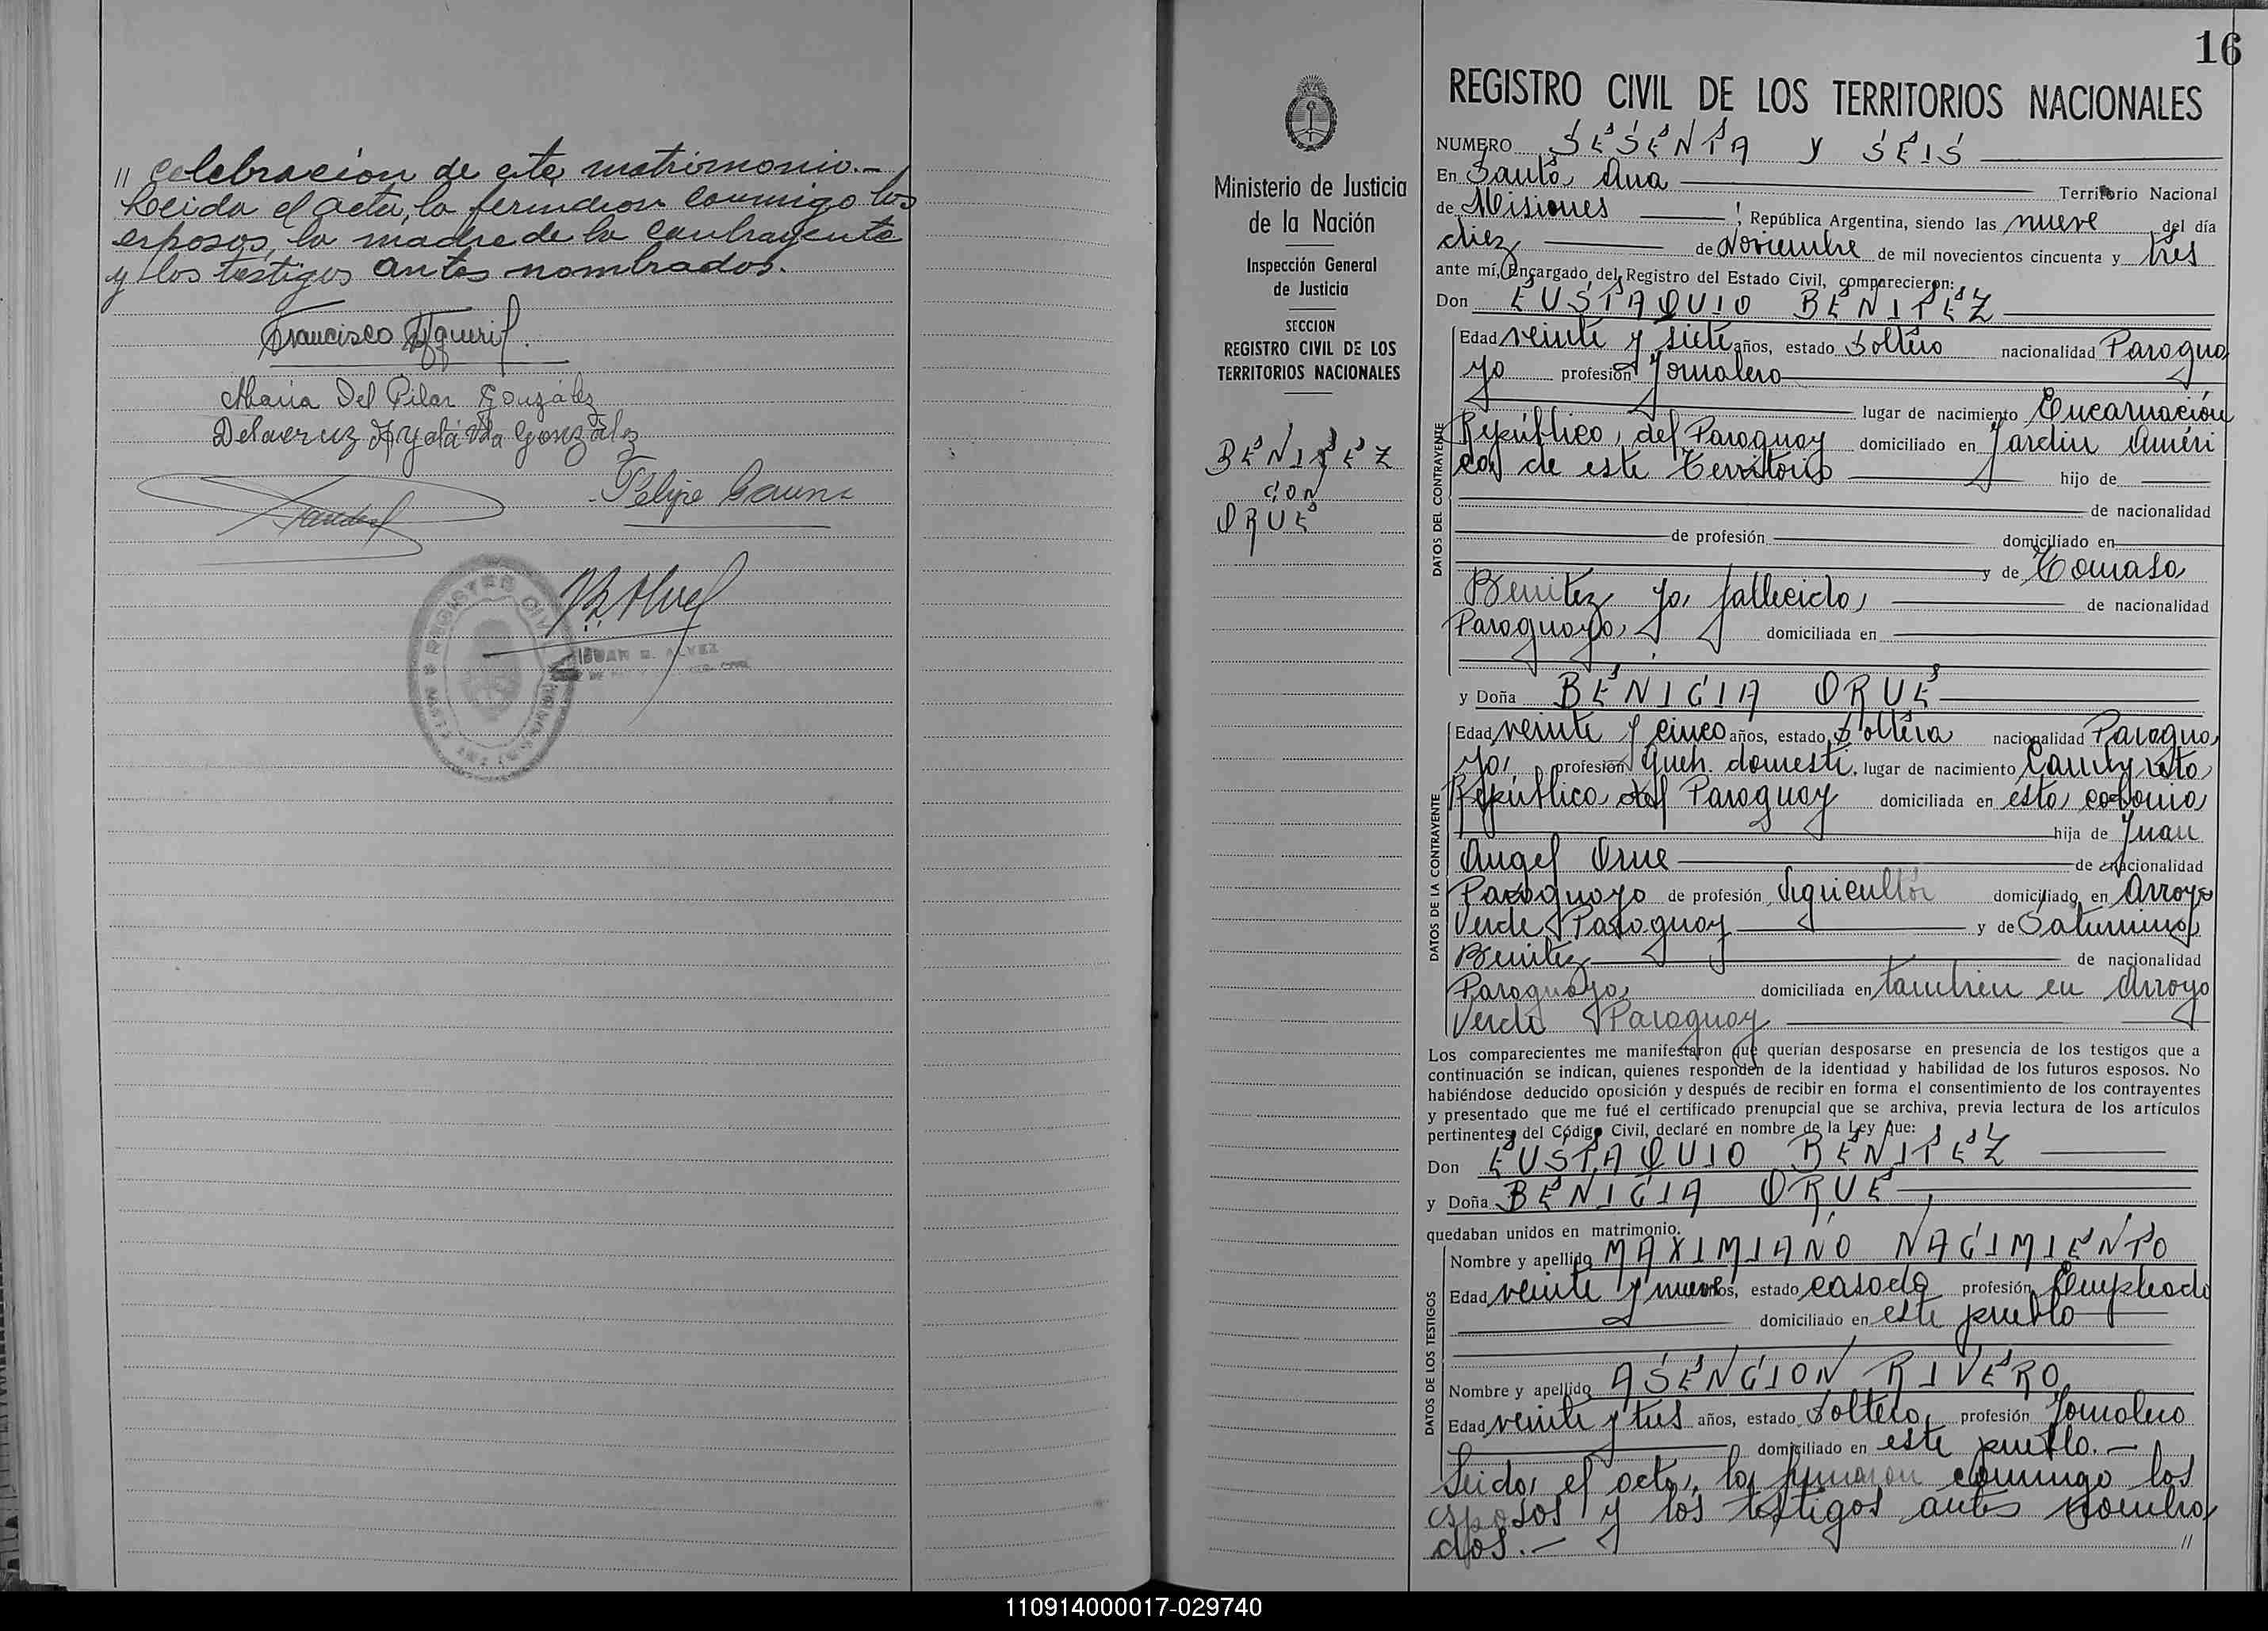 // celebracion de este matrimonio.-
Leida el acta, la firmaron conmigo los
esposos, la madre de la contrayente
y los testigos antes nombrados.
Francisco
María Del Pilar González
Delacruz Ayala Vda González
Felipe Gauna
JUAN B. ALVEZ
16
REGISTRO CIVIL DE LOS TERRITORIOS NACIONALES
Ministerio de Justicia
de la Nación
Inspección General
de Justicia
SECCION
REGISTRO CIVIL DE LOS
TERRITORIOS NACIONALES
BENITEZ
CON
ORUE
NUMERO SESENTA y SEIS
En Santa Ana Territorio Nacional
de Misiones, República Argentina, siendo las nueve del día
diez de Noviembre de mil novecientos cincuenta y tres
ante mí, Encargado del Registro del Estado Civil, comparecieron:
Don EUSTAQUIO BENITEZ
DATOS DEL CONTRAYENTE
Edad veinte y siete años, estado Soltero nacionalidad Paragua
yo profesión Jornalero
lugar de nacimiento Encarnación
República del Paraguay domiciliado en Jardin Améri
ca, de este Territorio hijo de
de nacionalidad
de profesión domiciliado en
y de Tomasa
Benitez ya fallecida, de nacionalidad
Paraguaya, domiciliada en
y Doña BENICIA ORUE
DATOS DE LA CONTRAYENTE
Edad veinte y cinco años, estado Soltera nacionalidad Paragua
ya, profesión Queh. domésti. lugar de nacimiento
República del Paraguay domiciliada en ésta colonia
hija de Juan
Angel Orue de nacionalidad
Paraguayo de profesión Agricultor domiciliado en Arroyo
Verde Paraguay y de Saturnina
Benitez de nacionalidad
Paraguaya, domiciliada en tambien en Arroyo
Verde Paraguay
Los comparecientes me manifestaron que querían desposarse en presencia de los testigos que a
continuación se indican, quienes responden de la identidad y habilidad de los futuros esposos. No
habiéndose deducido oposición y después de recibir en forma el consentimiento de los contrayentes
y presentado que me fué el certificado prenupcial que se archiva, previa lectura de los artículos
pertinentes del Código Civil, declaré en nombre de la Ley que:
Don EUSTAQUIO BENITEZ
y Doña BENICIA ORUE
quedaban unidos en matrimonio.
DATOS DE LOS TESTIGOS
Nombre y apellido MAXIMIANO NACIMIENTO
Edad veinte y nueve años, estado casado profesión Empleado
domiciliado en este pueblo
Nombre y apellido ASENCION RIVERO
Edad veinte y tres años, estado Soltero, profesión Jornalero
domiciliado en este pueblo.-
Leida, el acta, la firmaron conmigo los
esposos y los testigos antes nombra
dos.- //
110914000017-029740